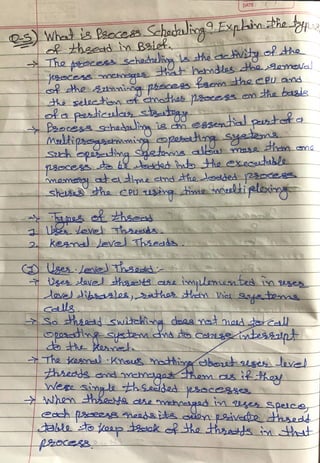 DATE
Q-5) What is Process Scheduling? Explain the typ
of thread in Brief.
→ The process scheduling is the activity of the
process manager that handles the removal
of the running process from the CPU and
the selection of another process on the basis
of a particular strategy
→ Process scheduling is an essential part of a
Multiprogramming operating systems
Such operating systems allow more than one
process to be loaded into the executable
memory at a time and the loaded process
shares the CPU using time multiplexing
→ Types of thread
1 User Level Threads.
2. Kernal Level Threads.
① User-Level Thread:-
→ User level threads are implemented in user
level libraries, rather than via systems
calls
→ So thread switching does not need to call
operating system and to cause interrupt
to the Kernel
→ The Kernal Knows nothing about user level
threads and manages them as if they
Were single threaded processes
→ When threads are managed in user space,
each process needs its own private thread
table to keep track of the threads in that
process.